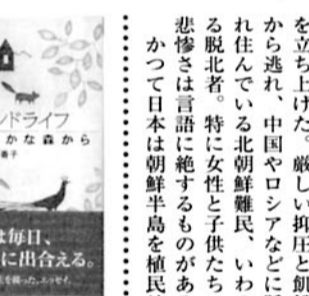 を立ち上げた。厳しい抑圧と飢
から逃れ、中国やロシアなどに
れ住んでいる北朝鮮難民、いわ
る脱北者。特に女性と子供たち
悲惨さは言語に絶するものがあ
かつて日本は朝鮮半島を植民
ンドライフ
かな森から
は毎日、
に出合える。